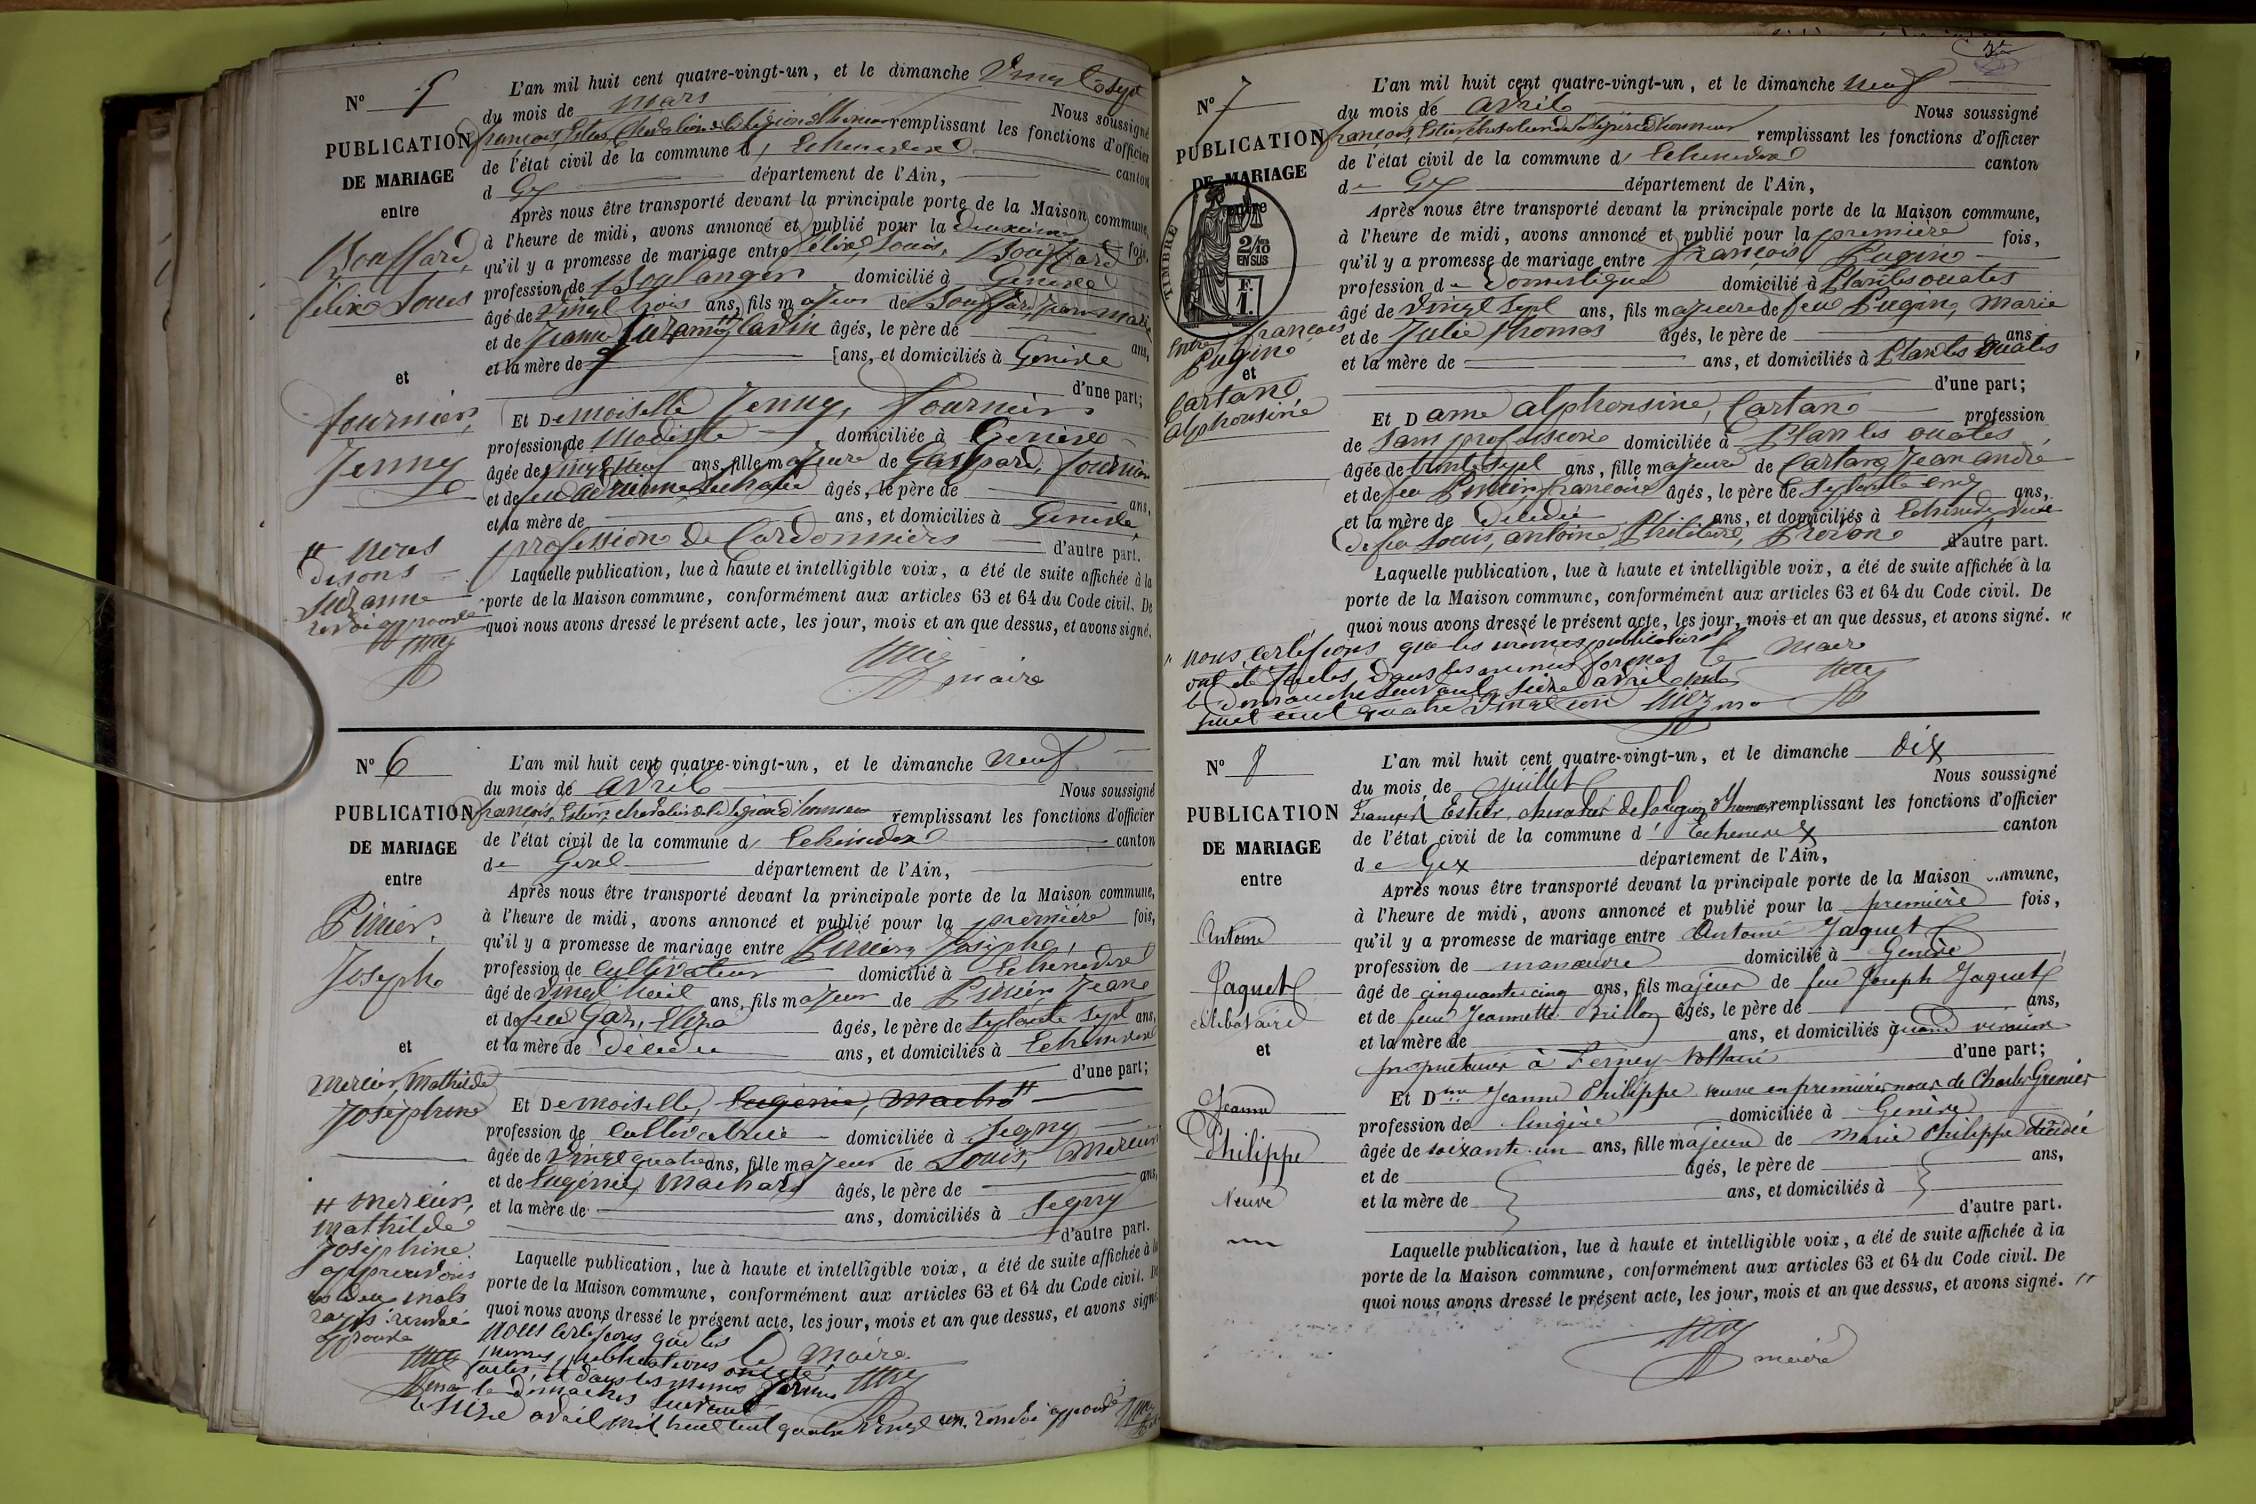 N° 5
PUBLICATION
DE MARIAGE
entre
Bouffard,
félix Louis
et
fournier,
Jenny
# nous
disons
Suzanne
renvoi approuvé
L'an mil huit cent quatre-vingt-un, et le dimanche Vingt Sept
du mois de mars Nous soussigné
françois, Estier, Chevalier de la légion d'honneur remplissant les fonctions d'officier
de l'état civil de la commune d' Echenevex canton
d Gex département de l'Ain,
Après nous être transporté devant la principale porte de la Maison commune,
à l'heure de midi, avons annoncé et publié pour la deuxième fois,
qu'il y a promesse de mariage entre félix, Louis, Bouffard
profession de Boulanger domicilié à Genève
âgé de vingt trois ans, fils majeur de Bouffard, jean marie
et de Jeanne Suzanne # âgés, le père de ans,
et la mère de [ans, et domiciliés à Genève
d'une part;
Et Demoiselle Jenny, fournier
profession de Modiste domiciliée à Genève
âgée de vingt neuf ans, fille majeure de Gaspard, fournier
et de feu âgés, le père de ans,
et la mère de ans, et domiciliés à Genève
profession de Cordonnier d'autre part.
Laquelle publication, lue à haute et intelligible voix, a été de suite affichée à la
porte de la Maison commune, conformément aux articles 63 et 64 du Code civil. De
quoi nous avons dressé le présent acte, les jour, mois et an que dessus, et avons signé.
maire
N° 6
PUBLICATION
DE MARIAGE
entre
Pinier,
Joseph
et
Mercier, Mathilde
Joséphine
# mercier,
mathilde
Joséphine
approuvons
les deux mots
rayés renvoi
approuvé
L'an mil huit cent quatre-vingt-un, et le dimanche neuf
du mois de avril Nous soussigné
françois, Estier, chevalier de la légion d'honneur remplissant les fonctions d'officier
de l'état civil de la commune d' Echenevex canton
de Gex département de l'Ain,
Après nous être transporté devant la principale porte de la Maison commune,
à l'heure de midi, avons annoncé et publié pour la première fois,
qu'il y a promesse de mariage entre Pinier, Joseph,
profession de cultivateur domicilié à Echenevex
âgé de vingt huit ans, fils majeur de Pinier Jean
et de feu Gaz, Eliza âgés, le père de septante sept ans,
et la mère de décédée ans, et domiciliés à Echenevex
d'une part;
Et Demoiselle, Eugénie, Machard #
profession de cultivatrice domiciliée à Segny
âgée de vingt quatre ans, fille majeur de Louis, Mercier
et de Eugénie, Machard âgés, le père de ans,
et la mère de ans, domiciliés à Segny
d'autre part.
Laquelle publication, lue à haute et intelligible voix, a été de suite affichée à la
porte de la Maison commune, conformément aux articles 63 et 64 du Code civil. De
quoi nous avons dressé le présent acte, les jour, mois et an que dessus, et avons signé
nous certifions que les le maire
mêmes publications ont été
faites, et dans les mêmes formes
le dimanche suivant
seize avril mil huit cent quatre vingt un. renvoi approuvé
N° 7
PUBLICATION
DE MARIAGE
entre
TIMBRE
2/10
EN SUS
F.
1.
Entre françois
Pugin
et
Cartano
alphonsine
L'an mil huit cent quatre-vingt-un, et le dimanche neuf
du mois de avril Nous soussigné
françois, Estier, chevalier de la légion d'honneur remplissant les fonctions d'officier
de l'état civil de la commune d' Echenevex canton
de Gex département de l'Ain,
Après nous être transporté devant la principale porte de la Maison commune,
à l'heure de midi, avons annoncé et publié pour la première fois,
qu'il y a promesse de mariage entre françois, Pugin
profession de Domestique domicilié à Plan les ouates
âgé de vingt sept ans, fils majeure de feu Pugin, Marie
et de Julie thomas âgés, le père de ans
et la mère de ans, et domiciliés à Plan les Ouates
d'une part;
Et Dame alphonsine, Cartano profession
de sans profession domiciliée à Plan les ouates,
âgée de trente sept ans, fille majeure de Cartano Jean andré
et de feu françoise âgés, le père de septante cinq ans,
et la mère de décédée ans, et domiciliés à Echenevex veuve
de feu Louis, antoine, d'autre part.
Laquelle publication, lue à haute et intelligible voix, a été de suite affichée à la
porte de la Maison commune, conformément aux articles 63 et 64 du Code civil. De
quoi nous avons dressé le présent acte, les jour, mois et an que dessus, et avons signé. "
" nous certifions que les mêmes publications le maire
ont été faites dans les mêmes formes
le dimanche suivant seize avril mil
huit cent quatre vingt un
N° 8
PUBLICATION
DE MARIAGE
entre
Antoine
Jaquet
célibataire
et
Jeanne
Philippe
Veuve
L'an mil huit cent quatre-vingt-un, et le dimanche dix
du mois de Juillet Nous soussigné
François Estier, chevalier de la légion d'honneur, remplissant les fonctions d'officier
de l'état civil de la commune d' Echenevex canton
de Gex département de l'Ain,
Après nous être transporté devant la principale porte de la Maison commune,
à l'heure de midi, avons annoncé et publié pour la première fois,
qu'il y a promesse de mariage entre Antoine Jaquet
profession de manœuvre domicilié à Genève
âgé de cinquante cinq ans, fils majeur de feu Joseph Jaquet
et de feue Jeannette Brilloz âgés, le père de ans,
et la mère de ans, et domiciliés quand vivaient
propriétaires à Ferney-Voltaire d'une part;
Et Dme Jeanne Philippe veuve en premières noces de Charles Grenier
profession de lingère domiciliée à Genève
âgée de soixante-un ans, fille majeure de Marie Philippe décédée
et de âgés, le père de ans,
et la mère de ans, et domiciliés à
d'autre part.
Laquelle publication, lue à haute et intelligible voix, a été de suite affichée à la
porte de la Maison commune, conformément aux articles 63 et 64 du Code civil. De
quoi nous avons dressé le présent acte, les jour, mois et an que dessus, et avons signé. "
maire